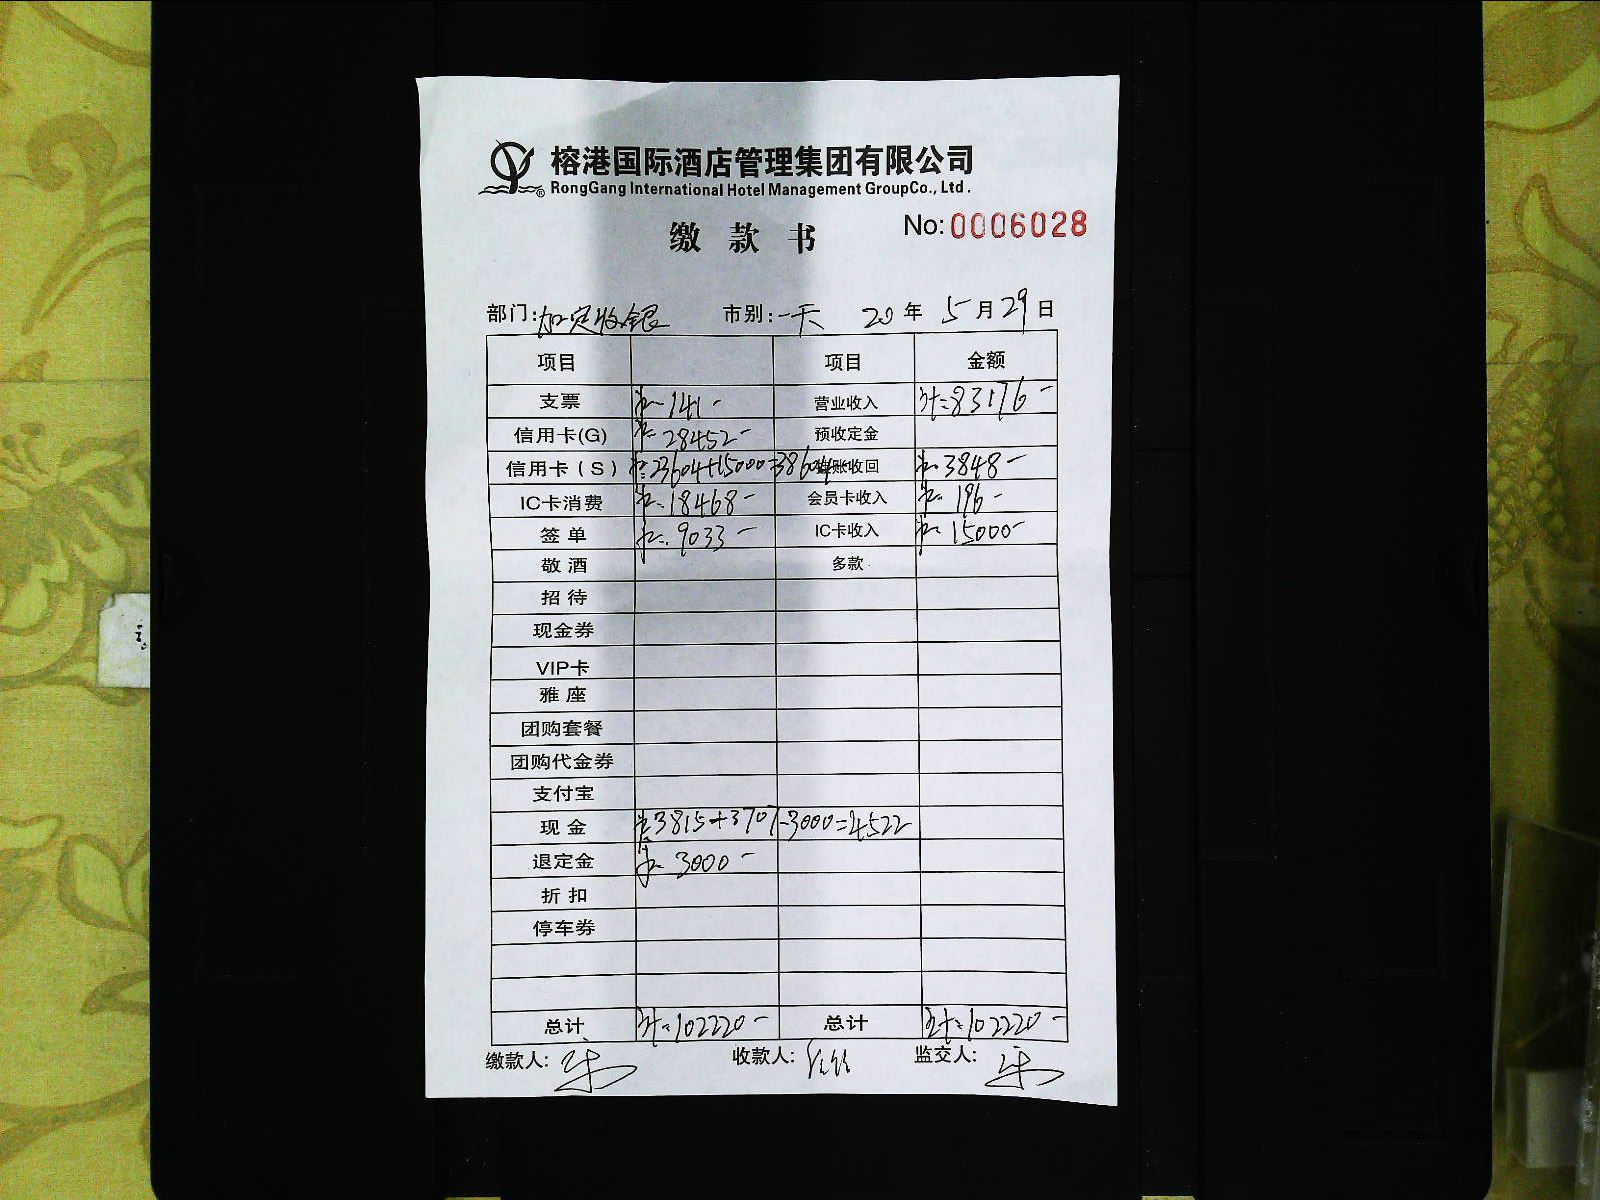 榕港国际酒店管理集团有限公司
RongGang International Hotel Management GroupCo., Ltd.
缴款书 No:0006028
部门:加定收银 市别:一天 20年5月29日
项目 项目 金额
支票 141- 营业收入 计=83176-
信用卡(G) 28452- 预收定金
信用卡(S) 23604+15000=38604 账收回 3848-
IC卡消费 18468- 会员卡收入 196-
签单 9033- IC卡收入 15000-
敬酒 多款
招待
现金券
VIP卡
雅座
团购套餐
团购代金券
支付宝
现金 3815+3707-3000=4522
退定金 3000-
折扣
停车券
总计 计=102220- 总计 计=102220-
缴款人: 收款人: 监交人: